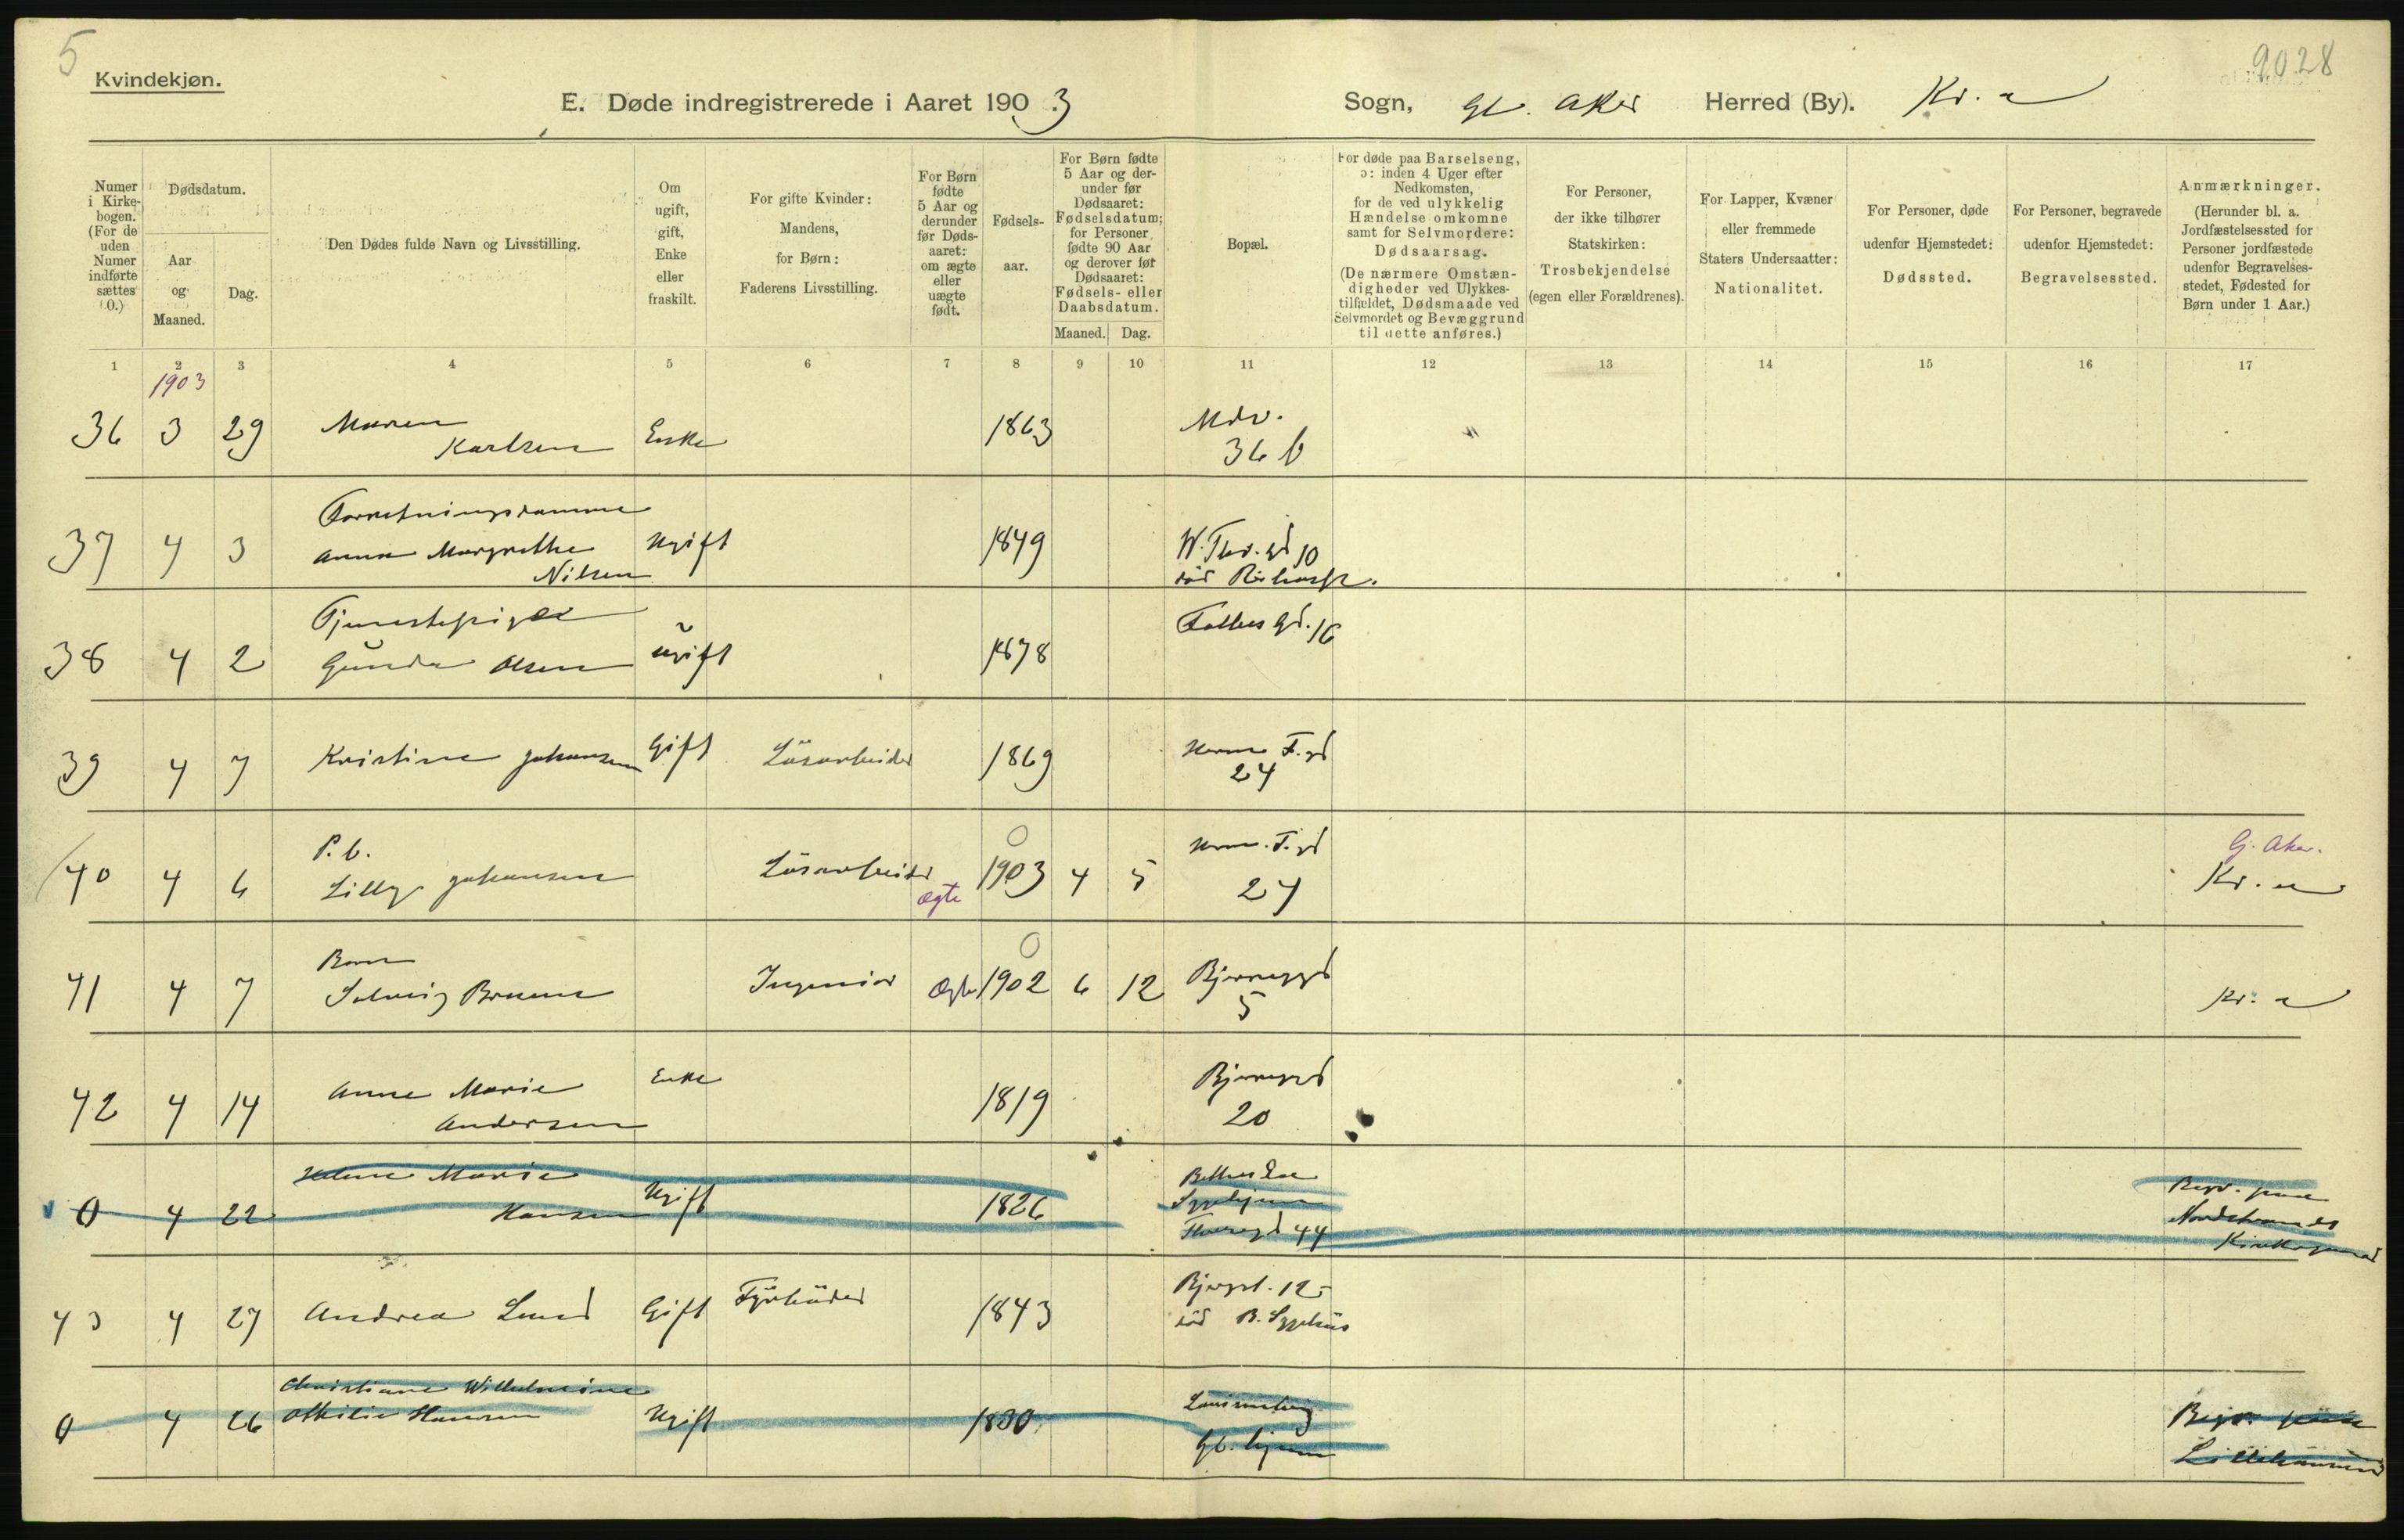 5
9028
Kvindekjøn.
E. Døde indregistrerede i Aaret 1903
Sogn, Gl. Aker Herred (By). Kr.a
Numer i Kirkebogen. (For de uden Numer indførte sættes 0.)
Dødsdatum.
Aar og Maaned.
Dag.
Den Dødes fulde Navn og Livsstilling.
Om ugift, gift, Enke eller fraskilt.
For gifte Kvinder: Mandens, for Børn: Faderens Livsstilling.
For Børn fødte 5 Aar og derunder før Dødsaaret: om ægte eller uægte født.
Fødselsaar.
For Børn fødte 5 Aar og derunder før Dødsaaret: Fødselsdatum; for Personer fødte 90 Aar og derover før Dødsaaret: Fødsels- eller Daabsdatum.
Maaned. Dag.
Bopæl.
For døde paa Barselseng, ɔ: inden 4 Uger efter Nedkomsten, for de ved ulykkelig Hændelse omkomne samt for Selvmordere: Dødsaarsag. (De nærmere Omstændigheder ved Ulykkestilfældet, Dødsmaade ved Selvmordet og Bevæggrund til dette anføres.)
For Personer, der ikke tilhører Statskirken: Trosbekjendelse (egen eller Forældrenes).
For Lapper, Kvæner eller fremmede Staters Undersaatter: Nationalitet.
For Personer, døde udenfor Hjemstedet: Dødssted.
For Personer, begravede udenfor Hjemstedet: Begravelsessted.
Anmærkninger. (Herunder bl. a. Jordfæstelsessted for Personer jordfæstede udenfor Begravelsesstedet, Fødested for Børn under 1 Aar.)
1 2 3 4 5 6 7 8 9 10 11 12 13 14 15 16 17
1903
36 3 29 Maren Karlsen Enke 1863 Mdv. 36 b
37 4 3 Forretningsdamme Anna Margrethe Nilsen Ugift 1849 W. Thr. gd 10 död Rishosp.
38 4 2 Tjenestepige Gunda Olsen ugift 1878 Falbes Gd. 16
39 4 7 Kristine Johansen Gift Lösarbeider 1869 Herm. F. gd 24
40 4 6 P. b. Lilly Johansen Lösarbeider Ægte 0 1903 4 5 Herm. F. gd 24 G. Aker. Kr.a
41 4 7 Barn Solveig Bruun Ingeniör Ægte 0 1902 6 12 Bjerregd 5 Kr.a
42 4 14 Anne Marie Andersen Enke 1819 Bjerregd 20
0 4 22 Marie Hansen Ugift 1826 Sygehjem 44 Begr. paa Nordstrands Kirkegaard
43 4 27 Andrea Lund Gift Fyrböder 1843 12 död B. Sygehus
0 4 26 Christiane Wilhelmine Othilie Hansen Ugift 1830 Gl. hjem Begr. paa Lillehammer